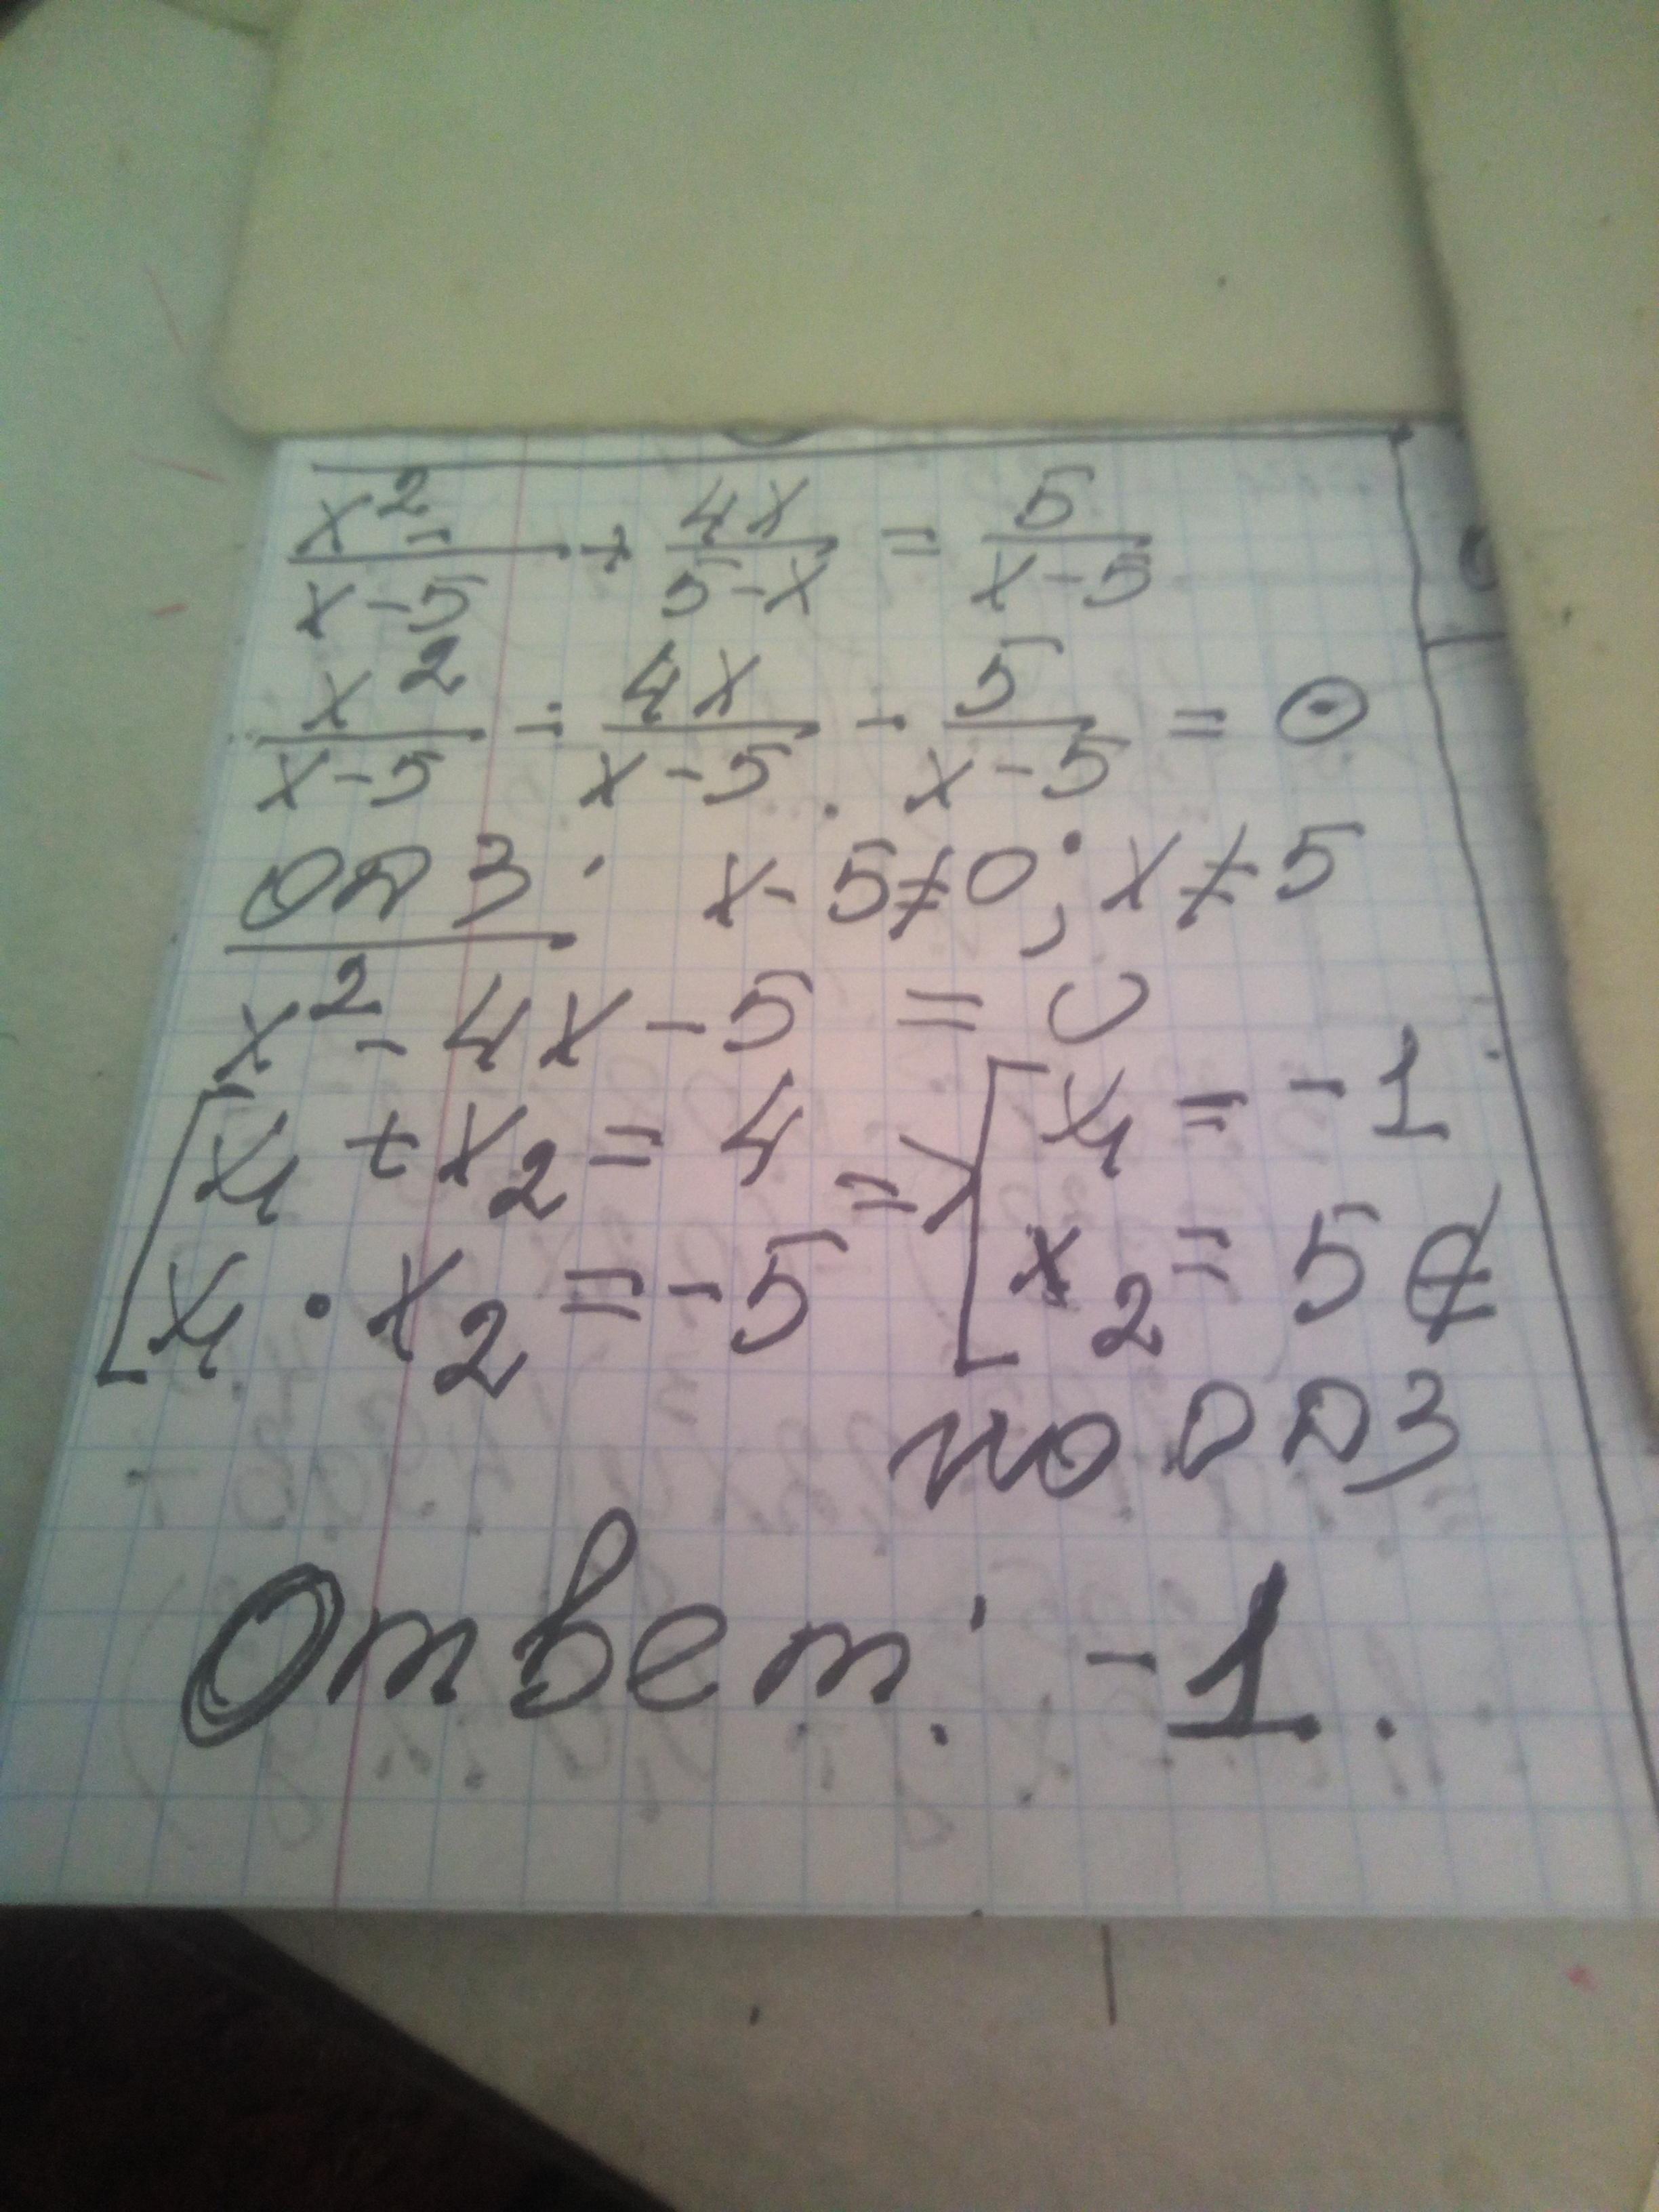 x²/(x-5) + 4x/(5-x) = 5/(x-5)
x²/(x-5) - 4x/(x-5) - 5/(x-5) = 0
ОДЗ: x-5≠0; x≠5
x²-4x-5 = 0
[x₁+x₂=4 => [x₁=-1
x₁·x₂=-5 x₂=5 ∉
по ОДЗ
Ответ: -1.